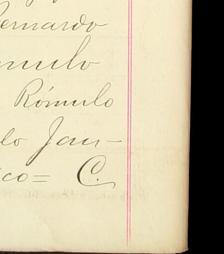 ernardo
mulo
Rómulo
lo Jau-
co= C.